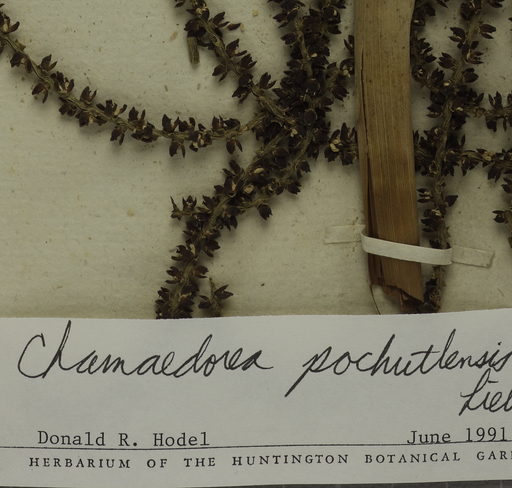 Chamaedorea pochutlensis
Lie
Donald R. Hodel June 1991
HERBARIUM OF THE HUNTINGTON BOTANICAL GAR